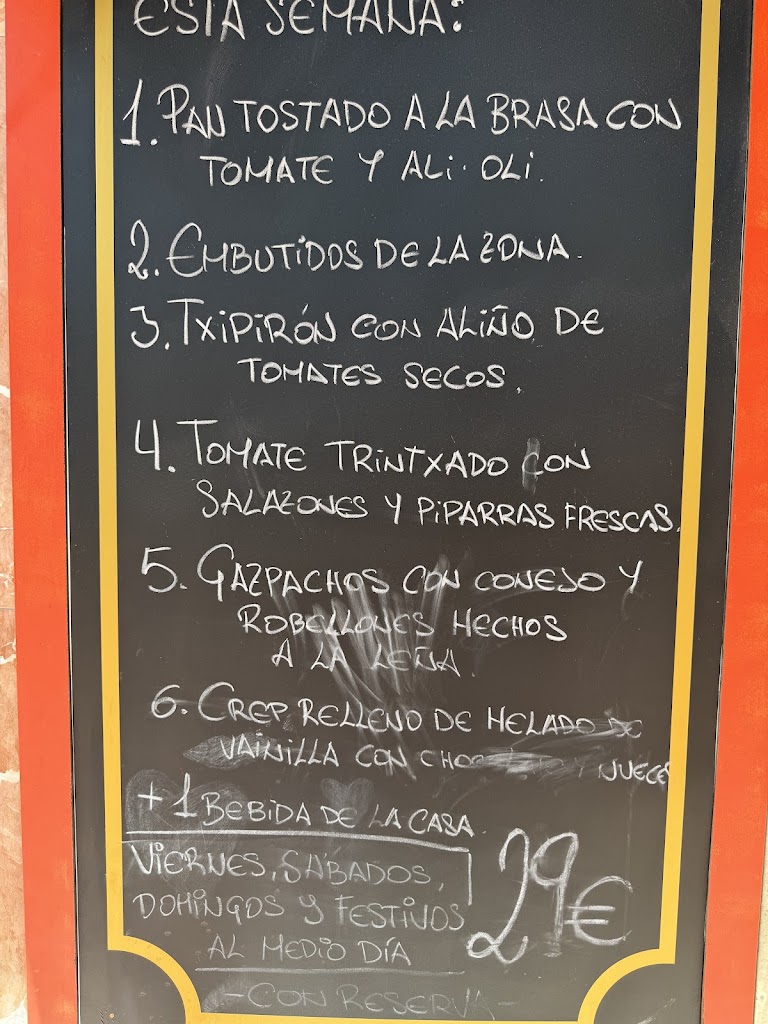 ESTA SEMANA:
1. PAN TOSTADO A LA BRASA CON
TOMATE Y ALI·OLI.
2. EMBUTIDOS DE LA ZONA.
3. TXIPIRÓN CON ALIÑO DE
TOMATES SECOS.
4. TOMATE TRINTXADO CON
SALAZONES Y PIPARRAS FRESCAS.
5. GAZPACHOS CON CONEJO Y
ROBELLONES HECHOS
A LA LEÑA.
6. CREP RELLENO DE HELADO DE
VAINILLA CON Y NUECES
+1 BEBIDA DE LA CASA.
VIERNES, SÁBADOS,
DOMINGOS Y FESTIVOS
AL MEDIO DÍA
29€
-CON RESERVA-